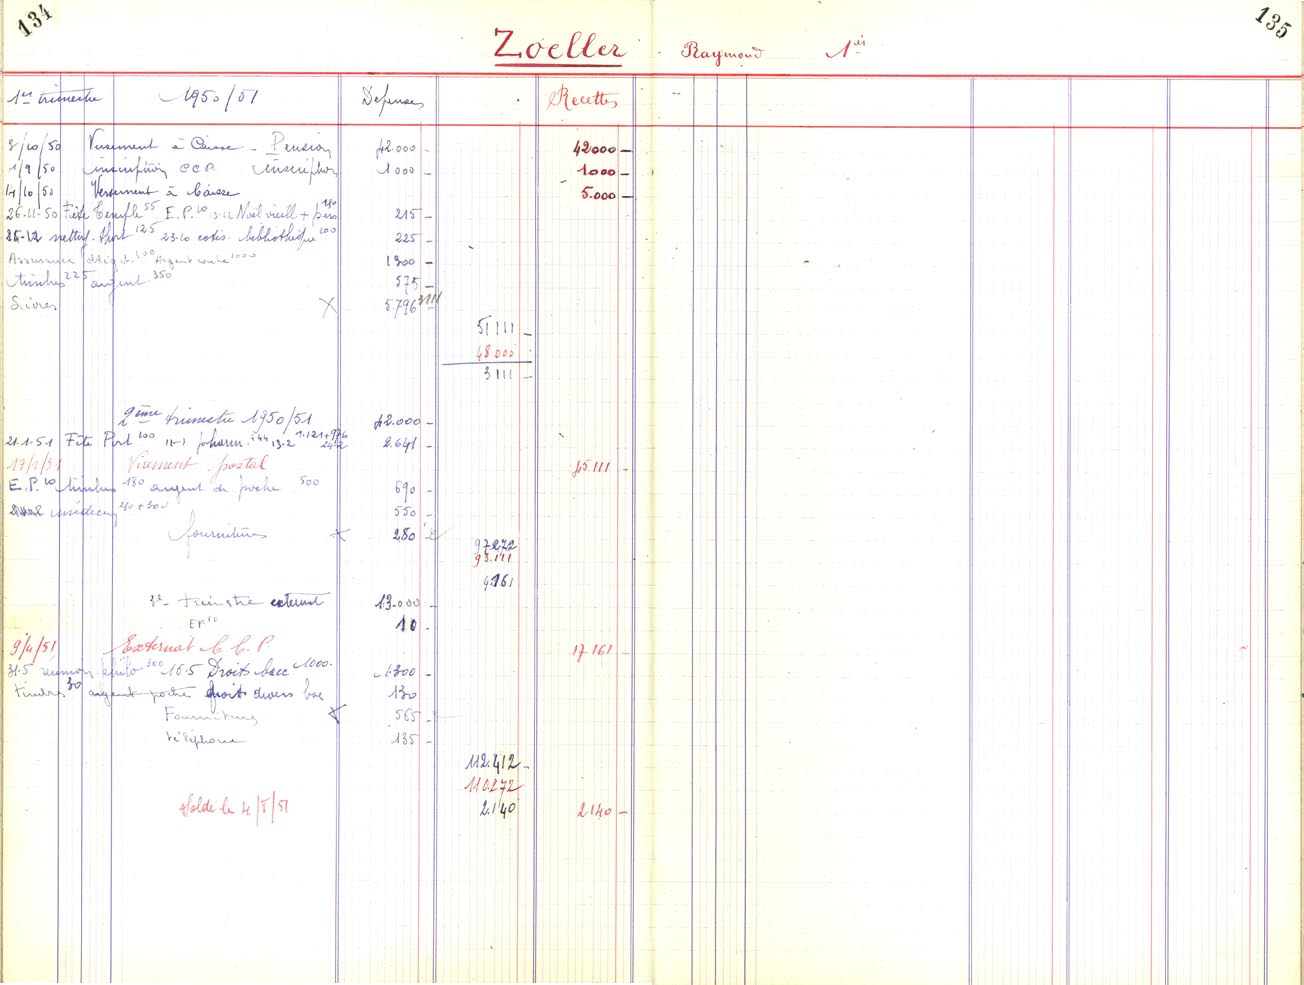 134
135
Zoeller Raymond 1ès
1er trimestre 1950/51 Dépenses Recettes
3/10/50 Versement à Caisse - Pension 42.000 - 42000 -
1/9/50 inscription CCP. inscription 1000 - 1000 -
14/10/50 Versement à Caisse 5.000 -
26-11-50 Fête Temple 55 E.P. 10 13-12 Noël vieill + 150 215 -
15-12 nettoy. 125 23-10 cotis. bibliothèque 100 225 -
Assurance obligat. 300 Argent 1000 1300 -
timbres 225 argent 350 575 -
Livres X 5.796 3111
51111 -
48000
3111 -
2ème trimestre 1950/51 42.000 -
21-1-51 Fête Port 100 11-1 pharm. 444 13-2 1.121+976 2.641 -
17/1/51 Virement postal 45.111 -
E.P. 10 timbres 180 argent de poche 500 690 -
médecin 550 -
fournitures X 280 -
97.272
93.111
4.161
3e trimestre externat 13.000 -
EP 10 10 -
9/4/51 Externat C.C.P. 17161 -
31-5 réunion philo 300 16-5 Droits bacc 1000. 1300 -
timbres 30 argent poche droits divers bac 130 -
Fournitures X 565 -
téléphone 135 -
112.412 -
110.272
Solde le 4/5/51 2.140 2140 -